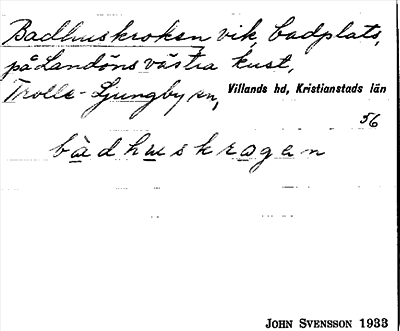 Badhuskroken vik, badplats,
på Landöns västra kust,
Trolle-Ljungby sn, Villands hd, Kristianstads län
56
bàdhuskrogen
JOHN SVENSSON 1933